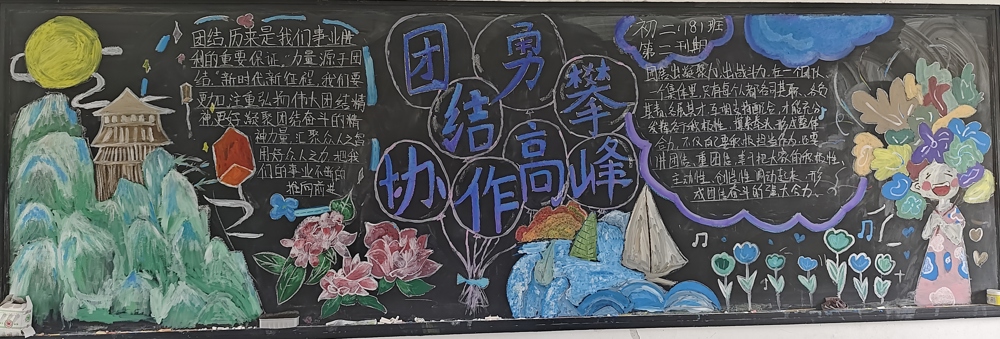 团结,历来是我们事业胜
利的重要保证。“力量源于团
结”新时代新征程,我们要
更加注重弘扬伟大团结精
神,更好凝聚团结奋斗的精
神力量,汇聚众人之智
用好众人之力,把我
们的事业不断
推向前进
团结协作
勇攀高峰
初二(8)班
第二刊期
团结出凝聚力,出战斗力,在一个团队
一个集体里,只有每个人都各司其职、各负
其责、各展其才,在相互间配合,才能充分
发挥各个积极性
合力
主动性、创造性调动起来,形
成团结奋斗的强大合力。